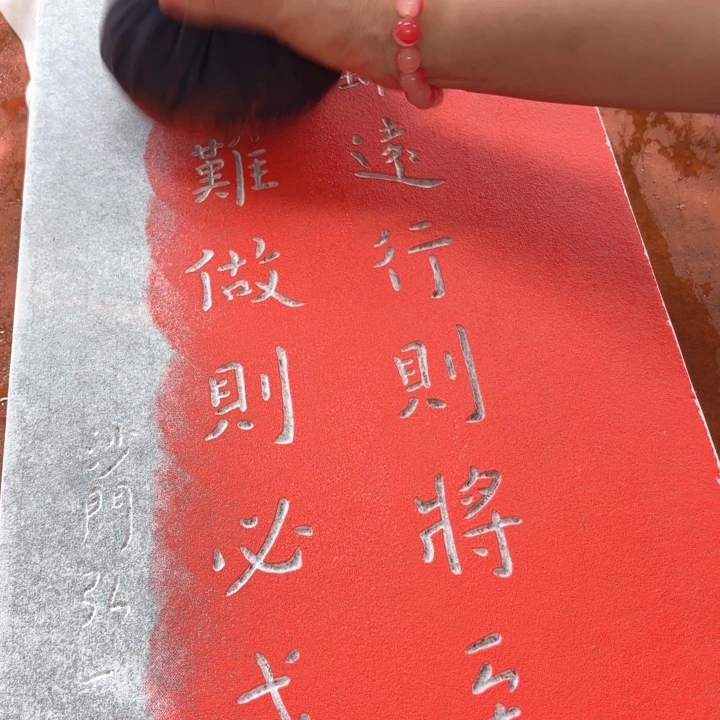 遠行則將至
難做則必成
沙門弘一